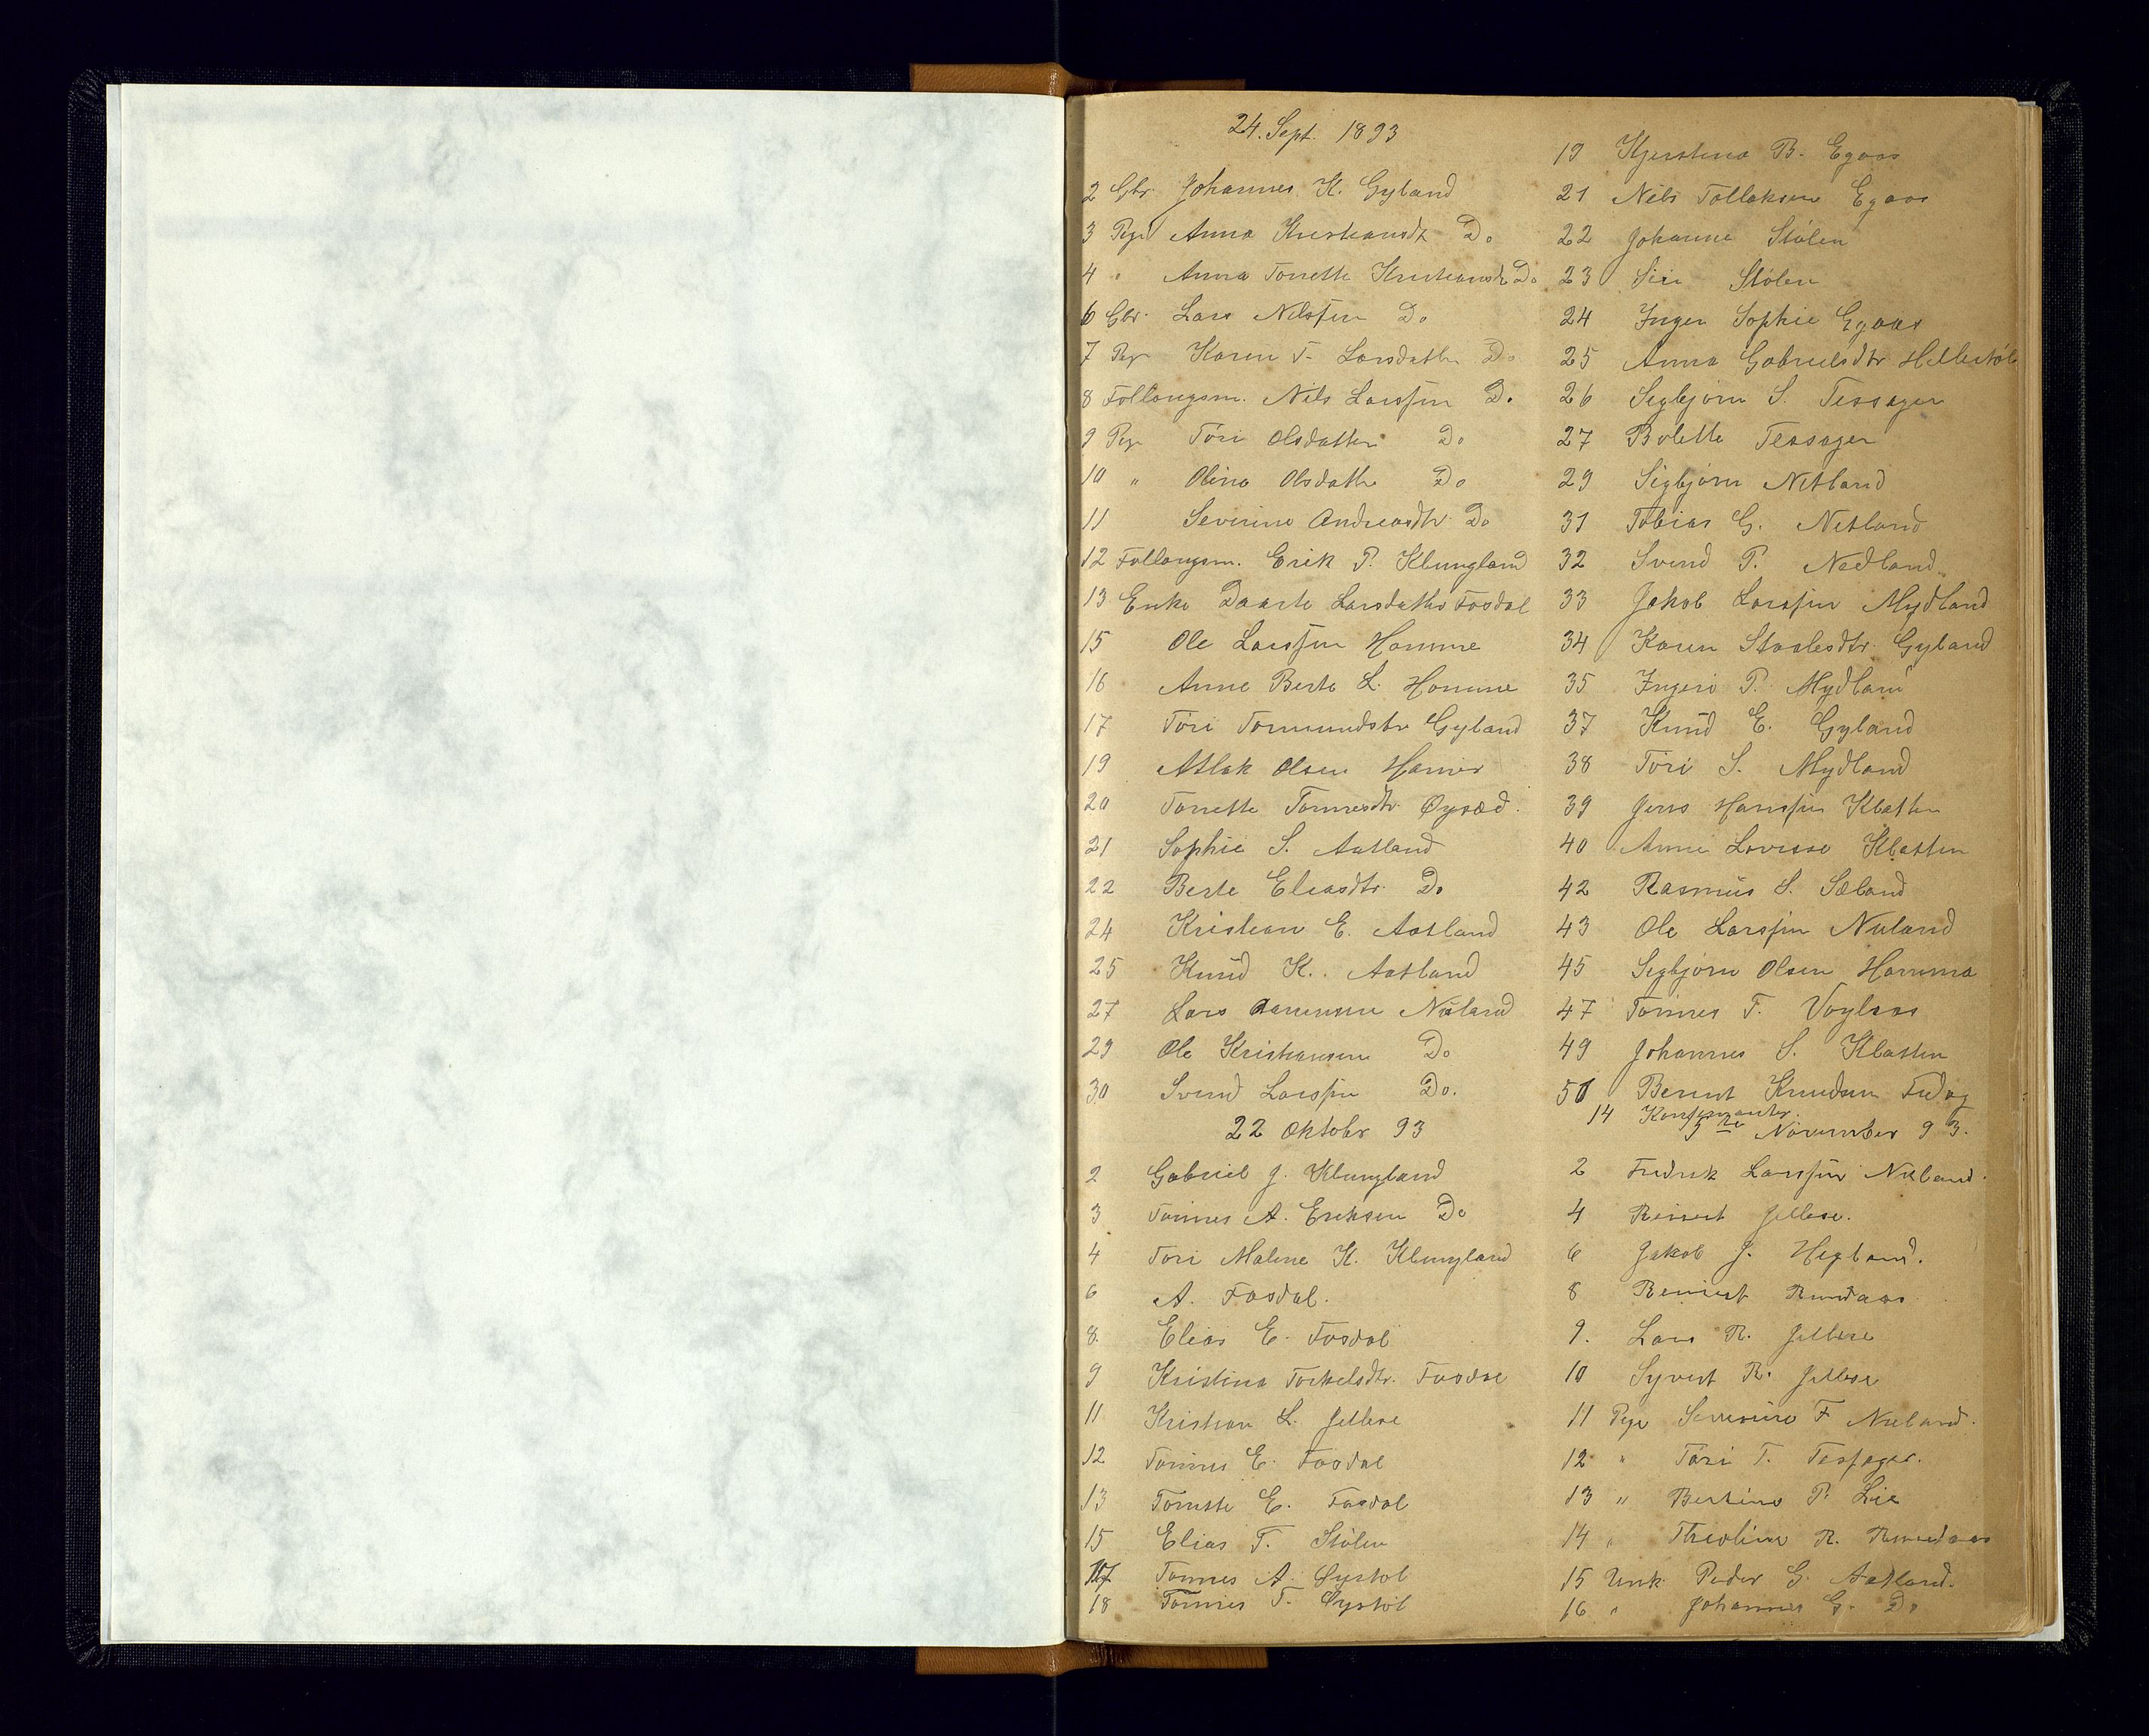 24. Sept. 1893
2 Gbr. Johannes K. Gyland
3 Pige Anna Kristiansdt Do
4 " Anna Tonette Kristiansdt Do
6 Gbr. Lars Nilssen Do
7 Pige Karen T. Larsdatter Do
8 Follaugsm. Nils Larssen Do
9 Pige Tóri Olsdatter Do
10 " Olina Olsdatter Do
11 Severine Andreasdtr Do
12 Follaugsm. Erik P. Klungland
13 Enke Daarte Larsdatter Fosdal
15 Ole Larssen Homme
16 Anne Berte L. Homme
17 Tóri Tormundsdtr Gyland
19 Atlak Olsen
20 Tonette Tonnesdtr. Øysæd.
21 Sophie S. Aatland
22 Berte Eliasdtr. Do
24 Kristian E. Aatland
25 Knud K. Aatland
27 Lars Aanensen Nuland
29 Ole Kristiansen Do
30 Svend Larssen Do.
22 Oktobr 93
2 Gabriel J. Klungland
3 Tonnes A. Eriksen Do
4 Tori Malene K. Klungland
6 A. Fosdal.
8. Elias E. Fosdal
9 Kristina Torkelsdtr. Fosdal
11 Kristian L. Jellese
12 Tonnes E. Fosdal
13 Tonette E. Fosdal
15 Elias T. Stólen
17 Tonnes A. Øystól
18 Tonnes T. Øystól
19 Kjerstina B. Egaas
21 Nils Tollaksen Egaas
22 Johanne Stólen
23 Siri Stólen
24 Inger Sophie Egaas
25 Anna Gabrielsdtr
26 Sigbjórn S. Tessager
27 Bolette Tessager
29 Sigbjórn Netland
31 Tobias G. Netland
32 Svend P. Nedland
33 Jakob Larssen Mydland
34 Karen Staalesdtr. Gyland
35 Ingeri P. Mydland
37 Knud E. Gyland
38 Tóri S. Mydland
39 Jens Hanssen Klatten
40 Anne Lovisse Klatten
42 Rasmus S. Sæland
43 Ole Larssen Nuland
45 Sigbjórn Olsen Homme
47 Tonnes F. Voglaas
49 Johannes S. Klatten
51 Berent Knudsen Fidog
14 Konfirmanter.
5te November 93.
2 Fredrik Larssen Nuland.
4 Reinert Jellese.
6 Jakob J. Hegland.
8 Reinert Rundaas
9. Lars R. Jellese
10 Syvert R. Jellese
11 Pige Severine F Nuland.
12 " Tóri T. Tessager.
13 " Bertine P. Lie
14 " Theoline R. Rundaas
15 Unk. Peder G. Aatland.
16 " Johannes G. Do